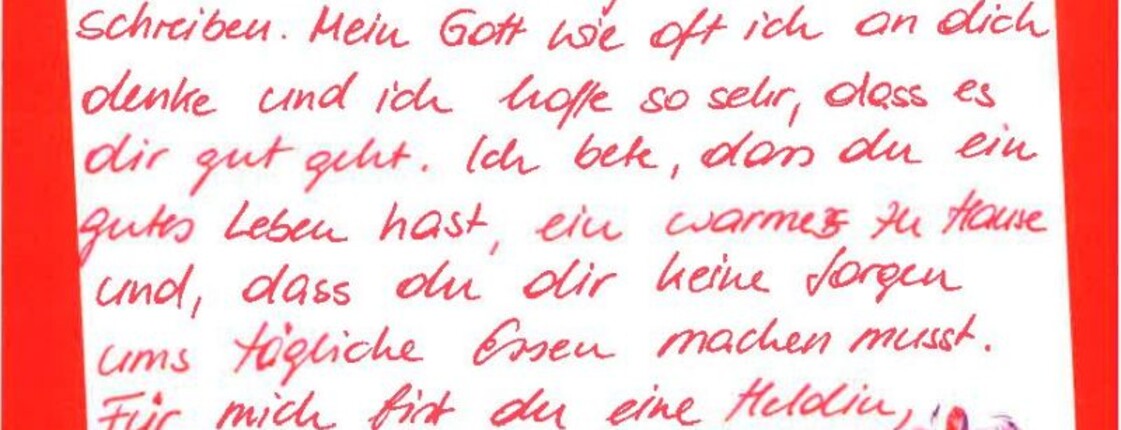 schreiben. Mein Gott wie oft ich an dich
denke und ich hoffe so sehr, dass es
dir gut geht. Ich bete, dass du ein
gutes Leben hast, ein warmes zu Hause
und, dass du dir keine Sorgen
ums tägliche Essen machen musst.
Für mich bist du eine Heldin,